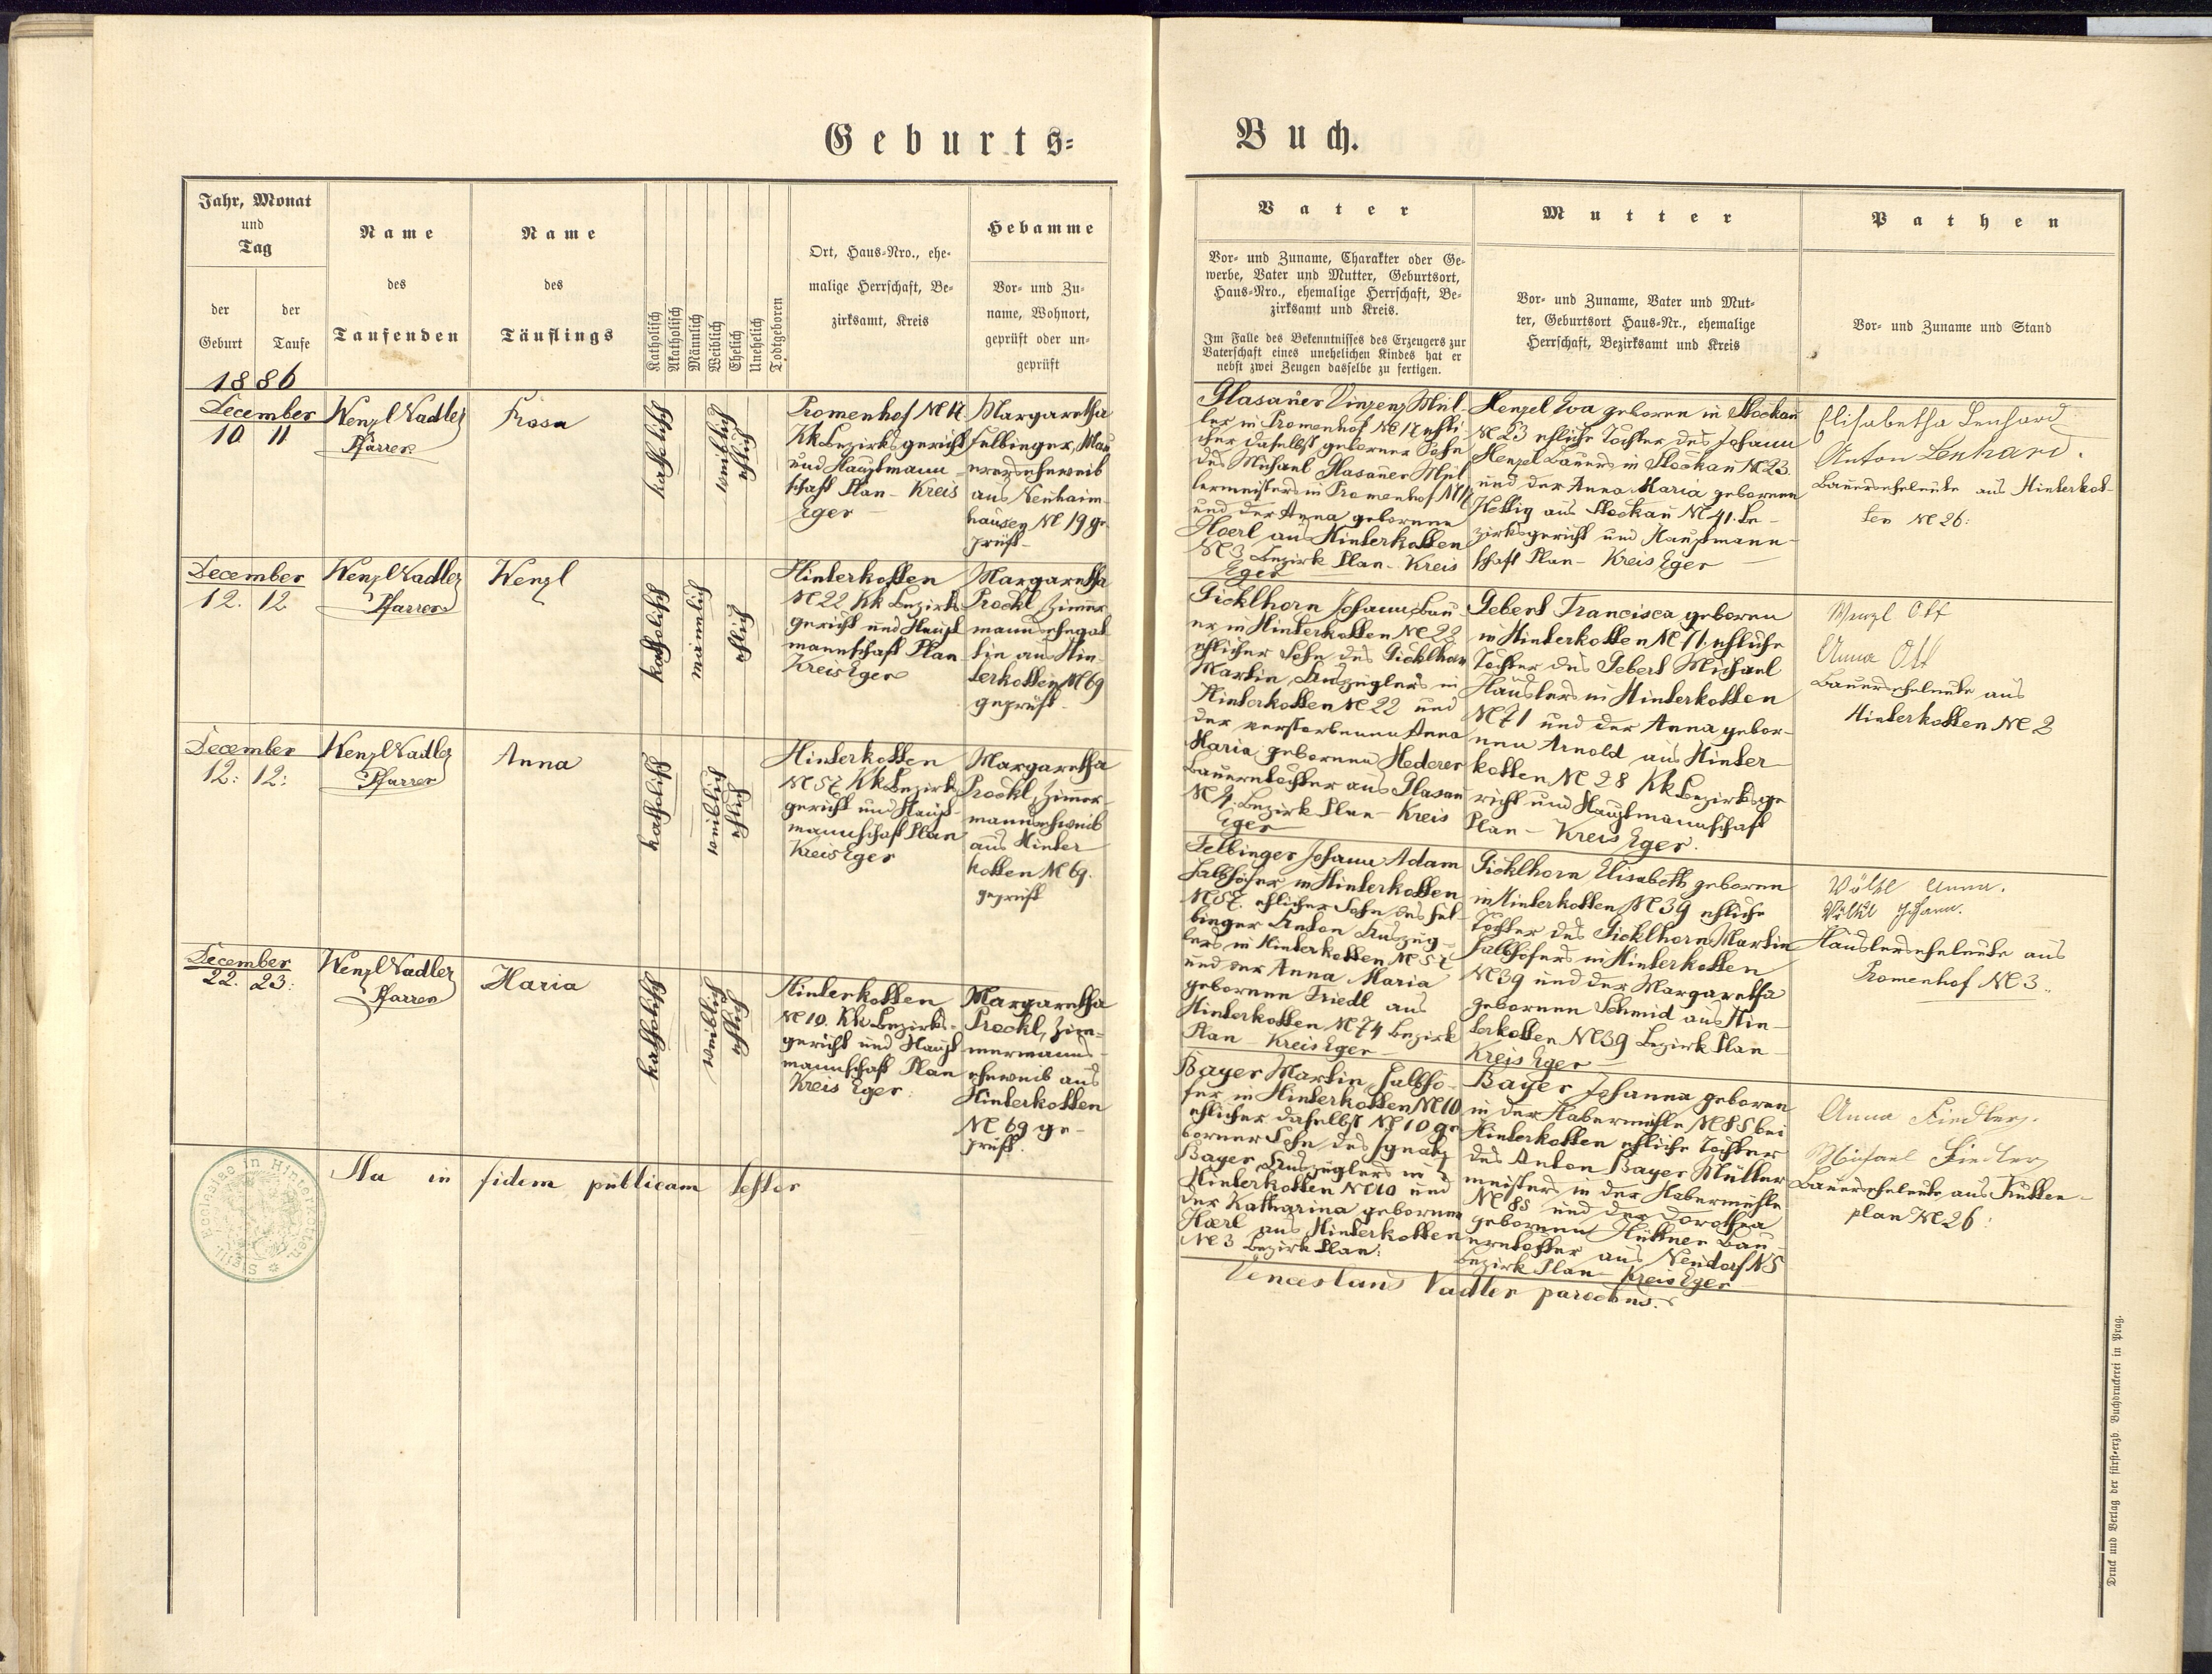 Geburts=
Buch.
Jahr, Monat
und
Tag
der
Geburt
der
Taufe
Name
des
Taufenden
Name
des
Täuflings
Katholisch
Akatholisch
Männlich
Weiblich
Ehelich
Unehelich
Todtgeboren
Ort, Haus-Nro., ehe-
malige Herrschaft, Be-
zirksamt, Kreis
Hebamme
Vor- und Zu-
name, Wohnort,
geprüft oder un-
geprüft
Vater
Vor- und Zuname, Charakter oder Ge-
werbe, Vater und Mutter, Geburtsort,
Haus-Nro., ehemalige Herrschaft, Be-
zirksamt und Kreis.
Im Falle des Bekenntnisses des Erzeugers zur
Vaterschaft eines unehelichen Kindes hat er
nebst zwei Zeugen dasselbe zu fertigen.
Mutter
Vor- und Zuname, Vater und Mut-
ter, Geburtsort Haus-Nr., ehemalige
Herrschaft, Bezirksamt und Kreis
Pathen
Vor- und Zuname und Stand
1886
December
10 11
Wenzl Vadler
Pfarrer
Rosa
katholisch
weiblich
ehlich
Promenhof N 17
Kk Bezirksgericht
und Hauptmann
schaft Plan - Kreis
Eger
Margaretha
Felbinger, Mau
rerseheweib
aus Neuhaim
hausen N 19 ge
prüft
Glasauer Vinzenz Mül-
ler in Promenhof N 17 ehli
cher daselbst geborner Sohn
des Michael Glasauer Mül
lermeisters in Promenhof N 17
und der Anna gebornen
Hoerl aus Hinterkotten
N 3 Bezirk Plan - Kreis
Eger
Henzel Eva geboren in Stockau
N 23 ehliche Tochter des Johann
Henzel Bauers in Stockau N 23
und der Anna Maria gebornen
Hettig aus Stockau N 41. Be-
zirksgericht und Hauptmann-
schaft Plan - Kreis Eger
Elisabetha Lenhard
Anton Lenhard.
Bauerseheleute aus Hinterkot-
ten N 26:
December
12. 12
Wenzl Vadler
Pfarrer
Wenzl
katholisch
männlich
ehlich
Hinterkotten
N 22 Kk Bezirks
gericht und Haupt
mannschaft Plan
Kreis Eger
Margaretha
Prockl, Zimmer
mannsehegat
tin aus Hin
terkotten N 69
geprüft.
Gicklhorn Johann Bau
er in Hinterkotten N 22
ehlicher Sohn des Gicklhorn
Martin Auszüglers in
Hinterkotten N 22 und
der verstorbenen Anna
Maria gebornen Hederer
Bauerntochter aus Glasau
N 4. Bezirk Plan - Kreis
Eger
Gebert Francisca geboren
in Hinterkotten N 71. ehliche
Tochter des Gebert Michael
Häuslers in Hinterkotten
N 71 und der Anna gebor-
nen Arnold aus Hinter
kotten N 28 Kk Bezirksge
richt und Hauptmannschaft
Plan - Kreis Eger.
Wenzl Ott
Anna Ott
Bauerseheleute aus
Hinterkotten N 2
December
12: 12:
Wenzl Vadler
Pfarrer
Anna
katholisch
weiblich
ehlich
Hinterkotten
N 57 Kk Bezirks
gericht und Haupt-
mannschaft Plan
Kreis Eger
Margaretha
Prockl, Zimmer-
mannseheweib
aus Hinter
kotten N 69.
geprüft
Felbinger Johann Adam
Halbhöfer in Hinterkotten
N 57. ehlicher Sohn des Fel-
binger Anton Auszüg-
lers in Hinterkotten N 57
und der Anna Maria
gebornen Friedl aus
Hinterkotten N 74 Bezirk
Plan - Kreis Eger
Gicklhorn Elisabeth geboren
in Hinterkotten N 39 ehliche
Tochter des Gicklhorn Martin
Halbhöfers in Hinterkotten
N 39 und der Margaretha
gebornen Schmid aus Hin-
terkotten N 39 Bezirk Plan
Kreis Eger
Wölkl Anna.
Wölkl Johann.
Häuslerseheleute aus
Promenhof N 3.
December
22. 23:
Wenzl Vadler
Pfarrer
Maria
katholisch
weiblich
ehlich
Hinterkotten
N 10. Kk Bezirks-
gericht und Haupt
mannschaft Plan
Kreis Eger.
Margaretha
Prockl, Zim-
mermanns-
eheweib aus
Hinterkotten
N 69 ge-
prüft.
Bayer Martin, Halbhö-
fer in Hinterkotten N 10
ehlicher daselbst N 10 ge
borner Sohn des Ignatz
Bayer Auszüglers in
Hinterkotten N 10 und
der Katharina gebornen
Hoerl aus Hinterkotten
N 3 Bezirk Plan.
Bayer Johanna geboren
in der Habermühle N 85 bei
Hinterkotten ehliche Tochter
des Anton Bayer Müller
meisters in der Habermühle
N 85 und der Dorothea
gebornen Hüttner Bau
erntochter aus Neudorf N 5
Bezirk Plan - Kreis Eger
Anna Fiedler.
Michael Fiedler
Bauerseheleute aus Kutten-
plan N 26:
Sigill. Ecclesiae in Hinterkotten
Ita in fidem publicam testor
Venceslaus Vadler parochus.
Druck und Verlag der fürst-erzb. Buchdruckerei in Prag.